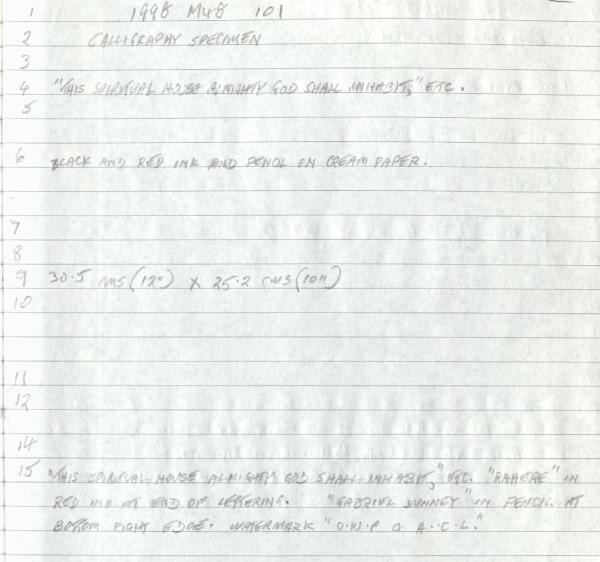 1 1998 MUS 101
2 CALLIGRAPHY SPECIMEN
3
4 "THIS SPIRITUAL HOUSE ALMIGHTY GOD SHALL INHABIT," ETC.
5
6 BLACK AND RED INK AND PENCIL ON CREAM PAPER.
7
8
9 30.5 cms (12") x 25.2 cms (10")
10
11
12
14
15 "THIS SPIRITUAL HOUSE ALMIGHTY GOD SHALL INHABIT," ETC. "RAHERE" IN
RED INK AT END OF LETTERING. "GABRIEL SUNNEY" IN PENCIL AT
BOTTOM RIGHT EDGE. WATERMARK "O.W.P & A.C.L."